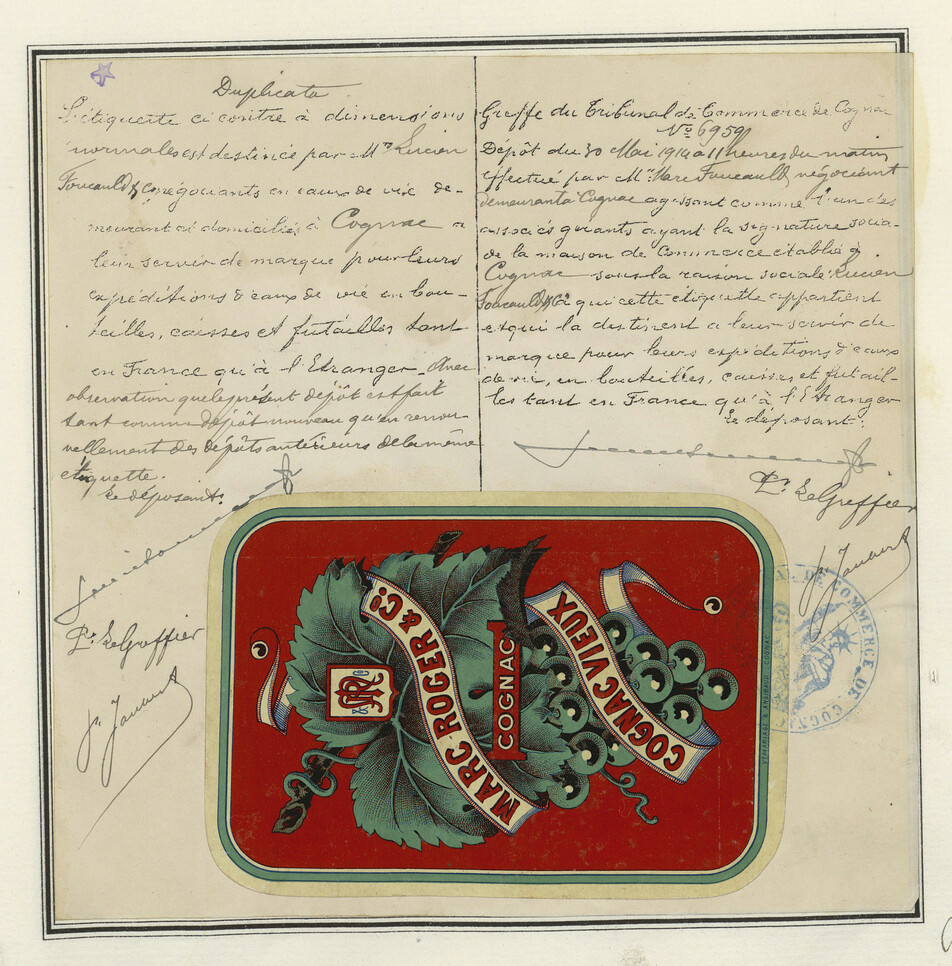 Duplicata
L'étiquette ci contre à dimensions
normales est destinée par Mrs Lucien
Foucauld & Co négociants en eaux de vie de-
meurant et domiciliés à Cognac a
leur servir de marque pour leurs
expéditions d'eaux de vie en bou-
teilles, caisses et futailles tant
en France qu'à l'Etranger. Avec
observation que le présent dépôt est fait
tant comme dépôt nouveau qu'en renou-
vellement des dépôts antérieurs de la même
étiquette.
Le déposant:
Pr. Le Greffier
Greffe du Tribunal de Commerce de Cognac
No 6959
Dépôt du 30 Mai 1914 a 11 heures du matin
effectué par Mr. Marc Foucauld négociant
demeurant à Cognac agissant comme l'un des
associés gérants ayant la signature socia-
le de la maison de Commerce établie à
Cognac sous la raison sociale Lucien
Foucauld & Co à qui cette étiquette appartient
et qui la destinent a leur servir de
marque pour leurs expéditions d'eaux
de vie, en bouteilles, caisses et futail-
les tant en France qu'à l'Etranger
Le déposant:
Pr. Le Greffier
MARC ROGER & Co.
COGNAC
COGNAC VIEUX
TRIBUNAL DE COMMERCE DE COGNAC